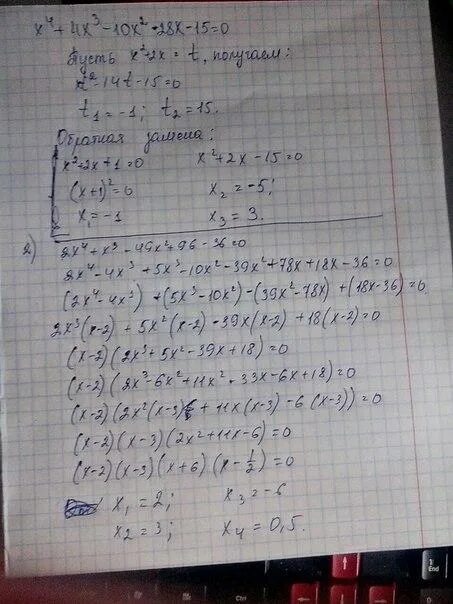 x⁴ + 4x³ - 10x² - 28x - 15 = 0
Пусть x² + 2x = t, получаем:
t² - 14t - 15 = 0
t₁ = -1; t₂ = 15.
Обратная замена:
x² + 2x + 1 = 0 x² + 2x - 15 = 0
(x+1)² = 0 x₂ = -5;
x₁ = -1 x₃ = 3.
2) 2x⁴ + x³ - 49x² + 96 - 36 = 0
2x⁴ - 4x³ + 5x³ - 10x² - 39x² + 78x + 18x - 36 = 0
(2x⁴ - 4x³) + (5x³ - 10x²) - (39x² - 78x) + (18x - 36) = 0
2x³(x-2) + 5x²(x-2) - 39x(x-2) + 18(x-2) = 0
(x-2)(2x³ + 5x² - 39x + 18) = 0
(x-2)(2x³ - 6x² + 11x² - 33x - 6x + 18) = 0
(x-2)(2x²(x-3) + 11x(x-3) - 6(x-3)) = 0
(x-2)(x-3)(2x² + 11x - 6) = 0
(x-2)(x-3)(x+6)(x - 1/2) = 0
x₁ = 2; x₃ = -6
x₂ = 3; x₄ = 0,5.
Alt
Ctrl
End